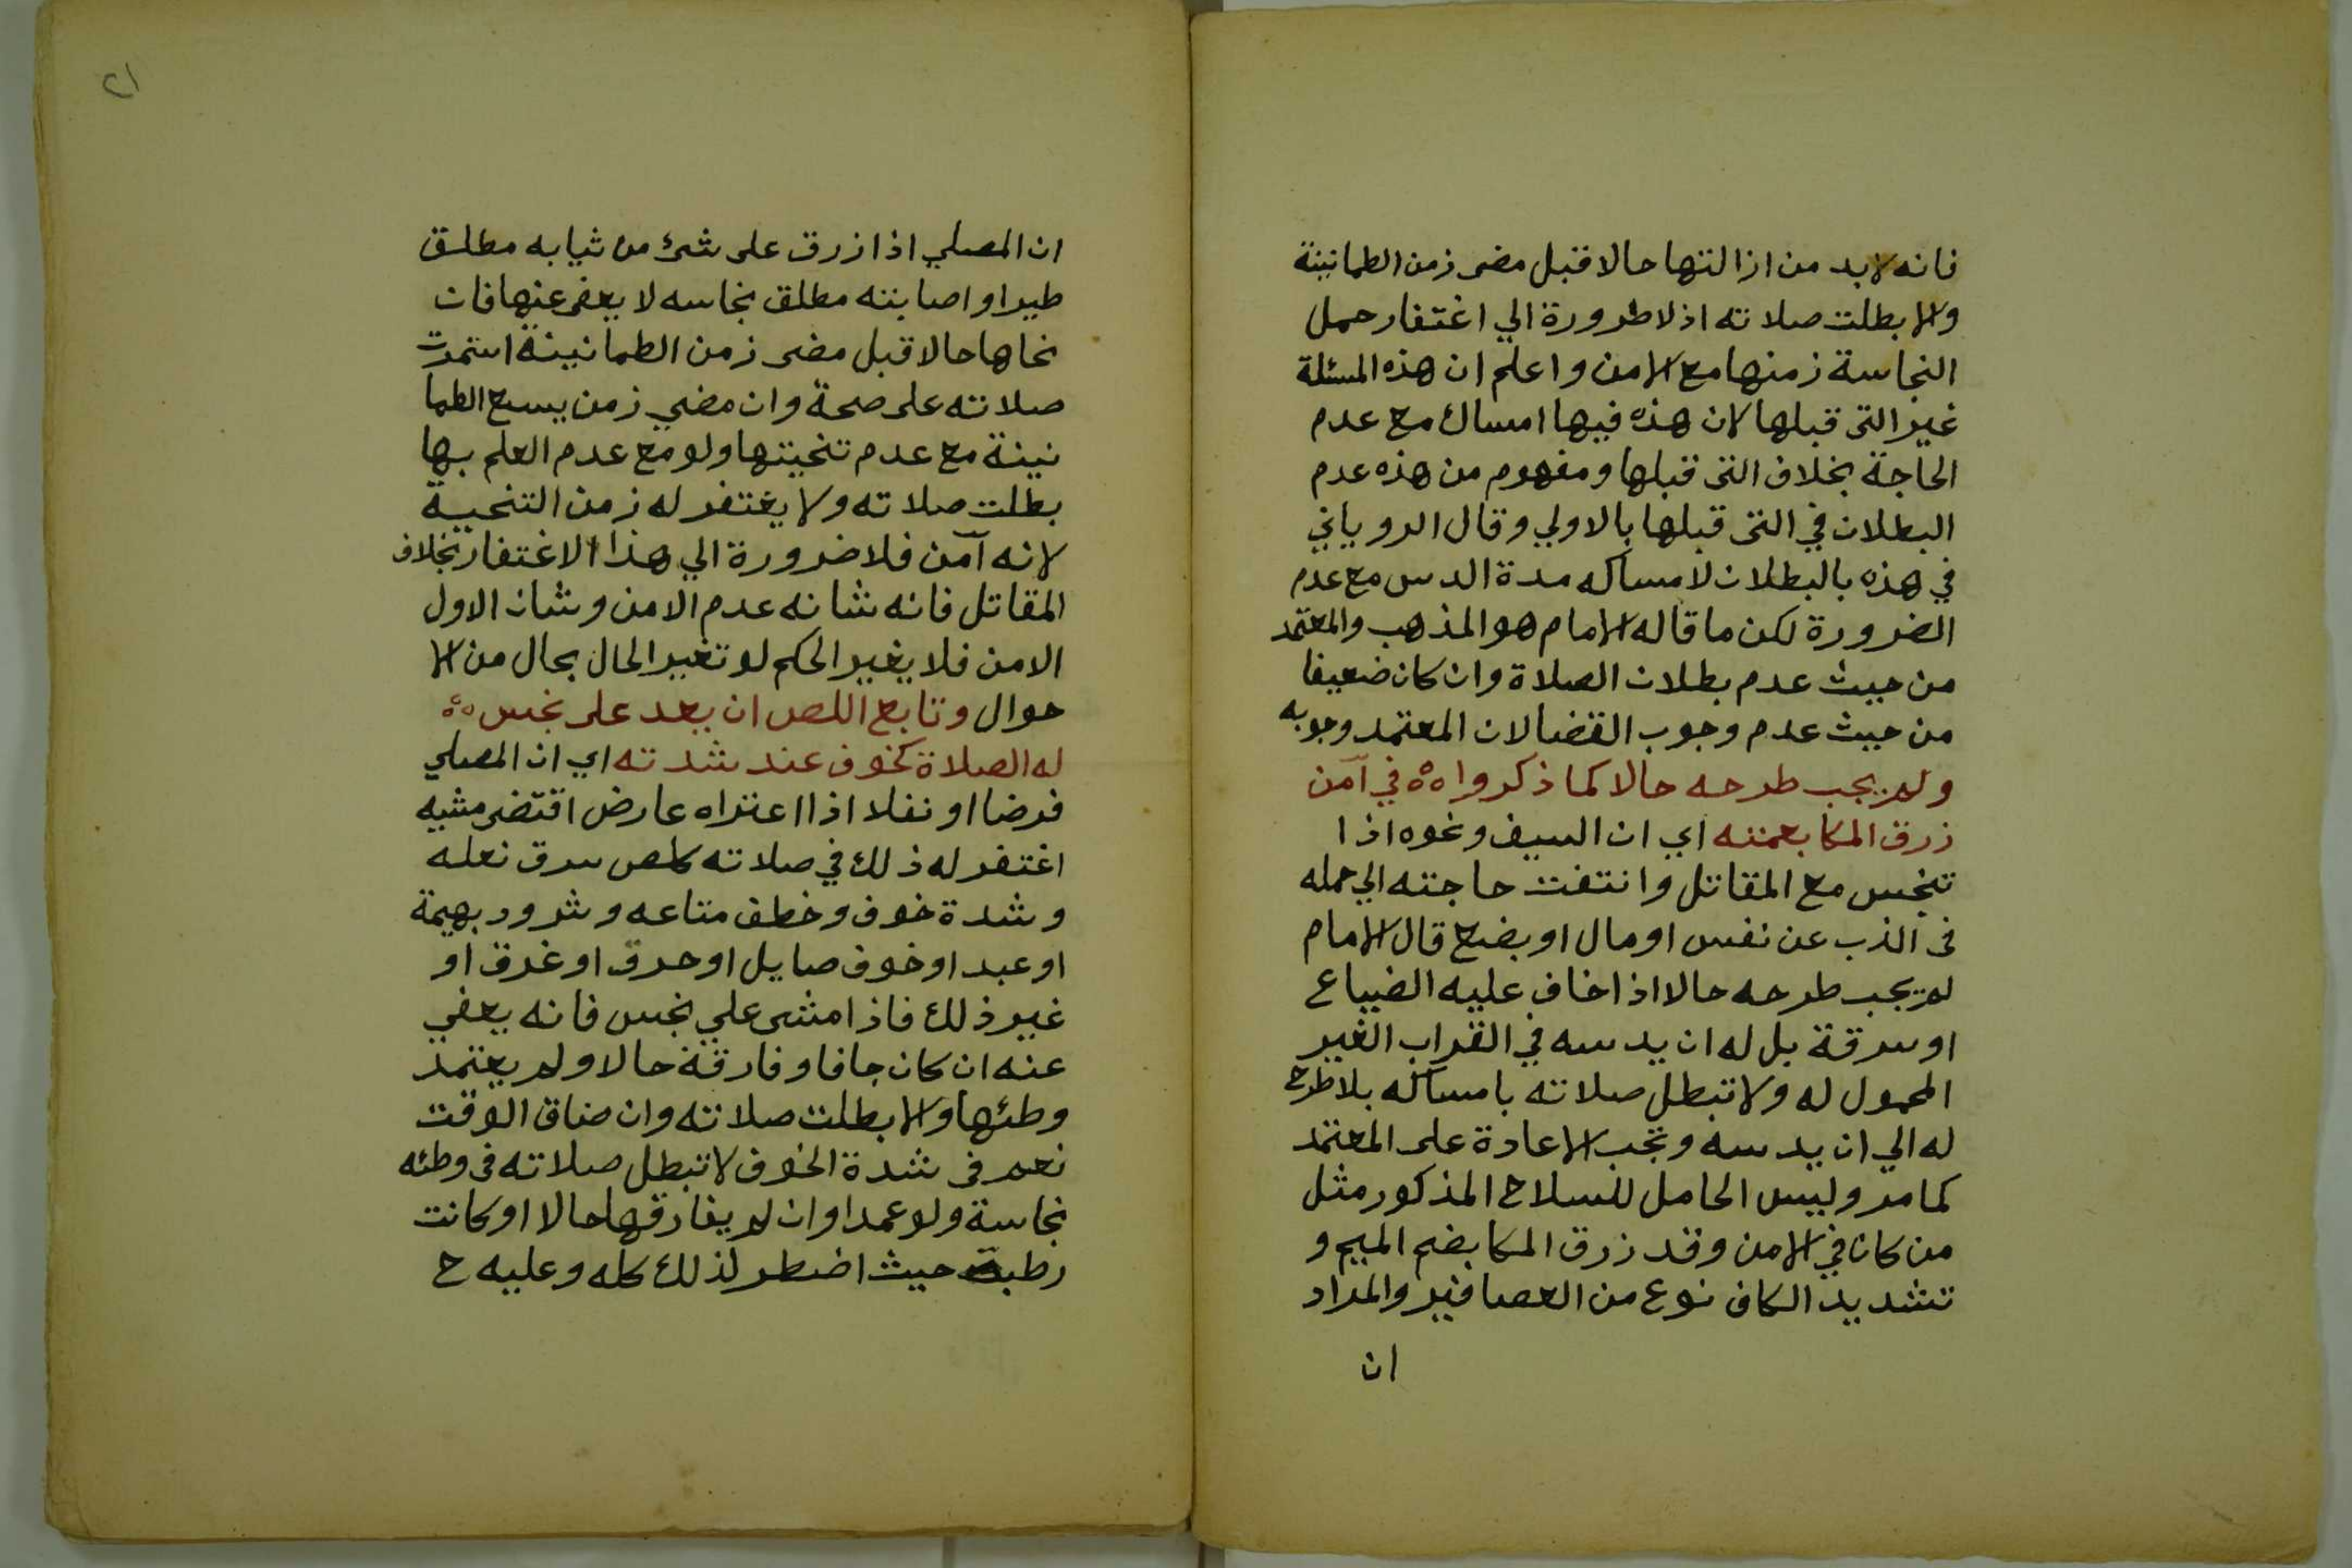 فانه لابد من ازالتها حالا قبل مضى زمن الطمانينة
والا بطلت صلاته اذ لا ضرورة الي اغتفار حمل
النجاسة زمنها مع الامن واعلم ان هذه المسئلة
غير التى قبلها لان هذه فيها امساك مع عدم
الحاجة بخلاف التى قبلها ومفهوم من هذه عدم
البطلان في التى قبلها بالاولي وقال الروياني
في هذه بالبطلان لامساكه مدة الدس مع عدم
الضرورة لكن ما قاله الامام هو المذهب والمعتمد
من حيث عدم بطلان الصلاة وان كان ضعيفا
من حيث عدم وجوب القضا لان المعتمد وجوبه
ولم يجب طرحه حالا كما ذكروا ه في آمن
زرق المكا يعمنه اي ان السيف ونحوه اذا
تنجس مع المقاتل وانتفت حاجته الي حمله
فى الذب عن نفس او مال او بضع قال الامام
لم يجب طرحه حالا اذا خاف عليه الضياع
او سرقة بل له ان يدسه في القراب الغير
المحمول له ولا تبطل صلاته بامساكه بلا طرح
له الي ان يدسه وتجب الاعادة على المعتمد
كما مر وليس الحامل للسلاح المذكور مثل
من كان في الامن وقد زرق المكا بضم الميم و
تشديد الكاف نوع من العصافير والمراد
ان
٢١
ان المصلي اذا زرق على شئ من ثيابه مطلق
طير او اصابته مطلق نجاسه لا يعفى عنها فان
نحاها حالا قبل مضى زمن الطمانينة استمرت
صلاته على صحة وان مضي زمن يسع الطما
نينة مع عدم تنحيتها ولو مع عدم العلم بها
بطلت صلاته ولا يغتفر له زمن التنحية
لانه آمن فلا ضرورة الي هذا الاغتفار بخلاف
المقاتل فانه شانه عدم الامن وشان الاول
الامن فلا يغير الحكم لو تغير الحال بحال من الا
حوال وتابع اللص ان يعد على نجس ه
له الصلاة كخوف عند شدته اي ان المصلي
فرضا او نفلا اذا اعتراه عارض اقتضى مشيه
اغتفر له ذلك في صلاته كلص سرق نعله
وشدة خوف وخطف متاعه وشرود بهيمة
او عبد او خوف صايل او حرق او غرق او
غير ذلك فاذا مشى علي نجس فانه يعفي
عنه ان كان جافا وفارقة حالا ولم يعتمد
وطئها والا بطلت صلاته وان ضاق الوقت
نعم فى شدة الخوف لا تبطل صلاته فى وطئه
نجاسة ولو عمدا وان لم يفارقها حالا او كانت
رطبة حيث اضطر لذلك كله وعليه ح